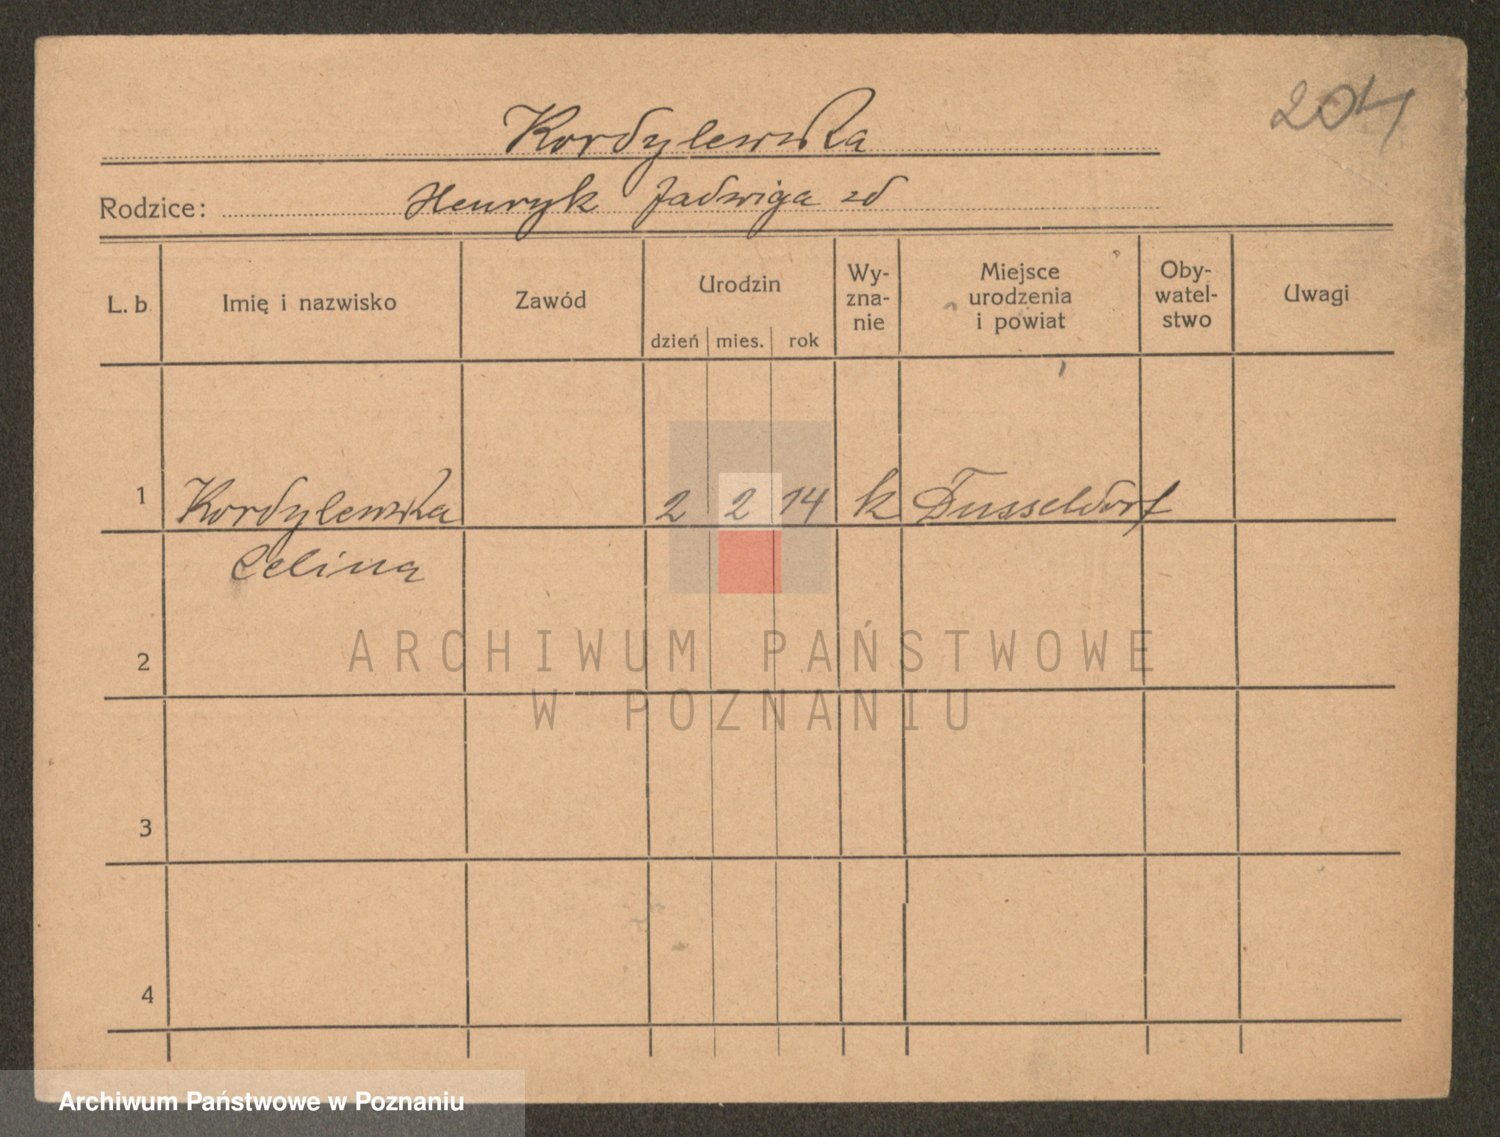 204
Kordylewska
Rodzice: Henryk Jadwiga zd
L. b. Imię i nazwisko Zawód Urodzin dzień mies. rok Wy-zna-nie Miejsce urodzenia i powiat Oby-watel-stwo Uwagi
1 Kordylewska 2 2 14 k Dusseldorf
Celina
2
ARCHIWUM PAŃSTWOWE
W POZNANIU
3
4
Archiwum Państwowe w Poznaniu